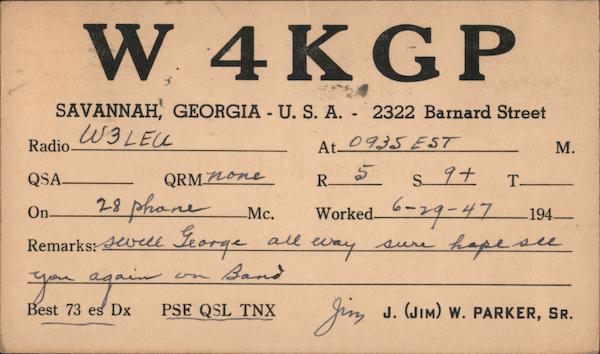 W 4KGP
SAVANNAH, GEORGIA - U. S. A. - 2322 Barnard Street
Radio W3LEU At 0935 EST M.
QSA QRM none R 5 S 9+ T
On 28 phone Mc. Worked 6-29-47 194
Remarks: swell George all way sure hope see
you again on Band
Best 73 es Dx PSE QSL TNX Jim J. (JIM) W. PARKER, SR.